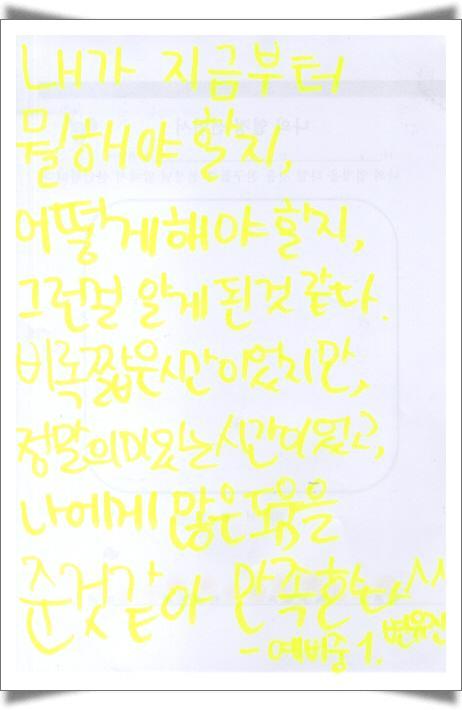 내가 지금부터
뭘해야 할지,
어떻게해야 할지,
그런걸 알게 된것 같다.
비록짧은시간이었지만,
정말의미있는시간이었고,
나에게 많은도움을
준것같아 만족한다^^
- 예비중1. 변유진